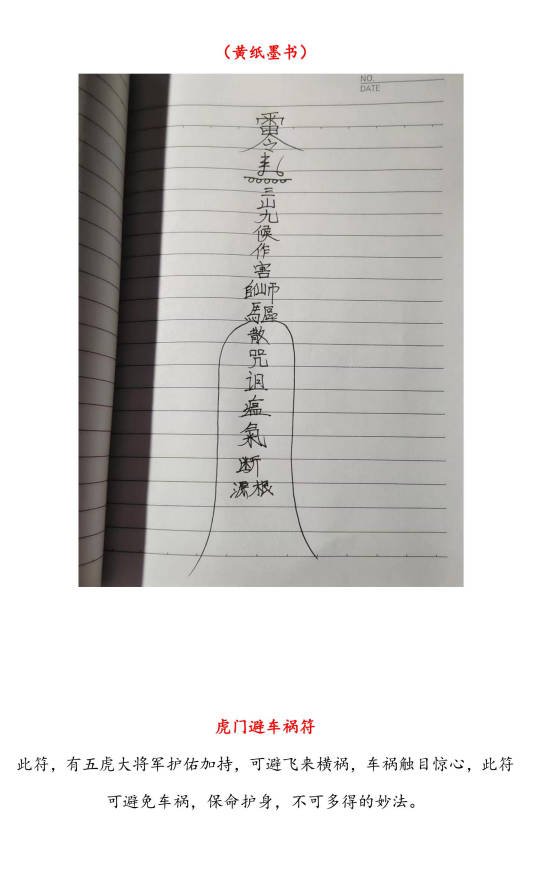 （黄纸墨书）
NO.
DATE
雷
令
三
山
九
候
作
害
師
驅
散
咒
诅
瘟
氣
断
源根
虎门避车祸符
此符，有五虎大将军护佑加持，可避飞来横祸，车祸触目惊心，此符
可避免车祸，保命护身，不可多得的妙法。